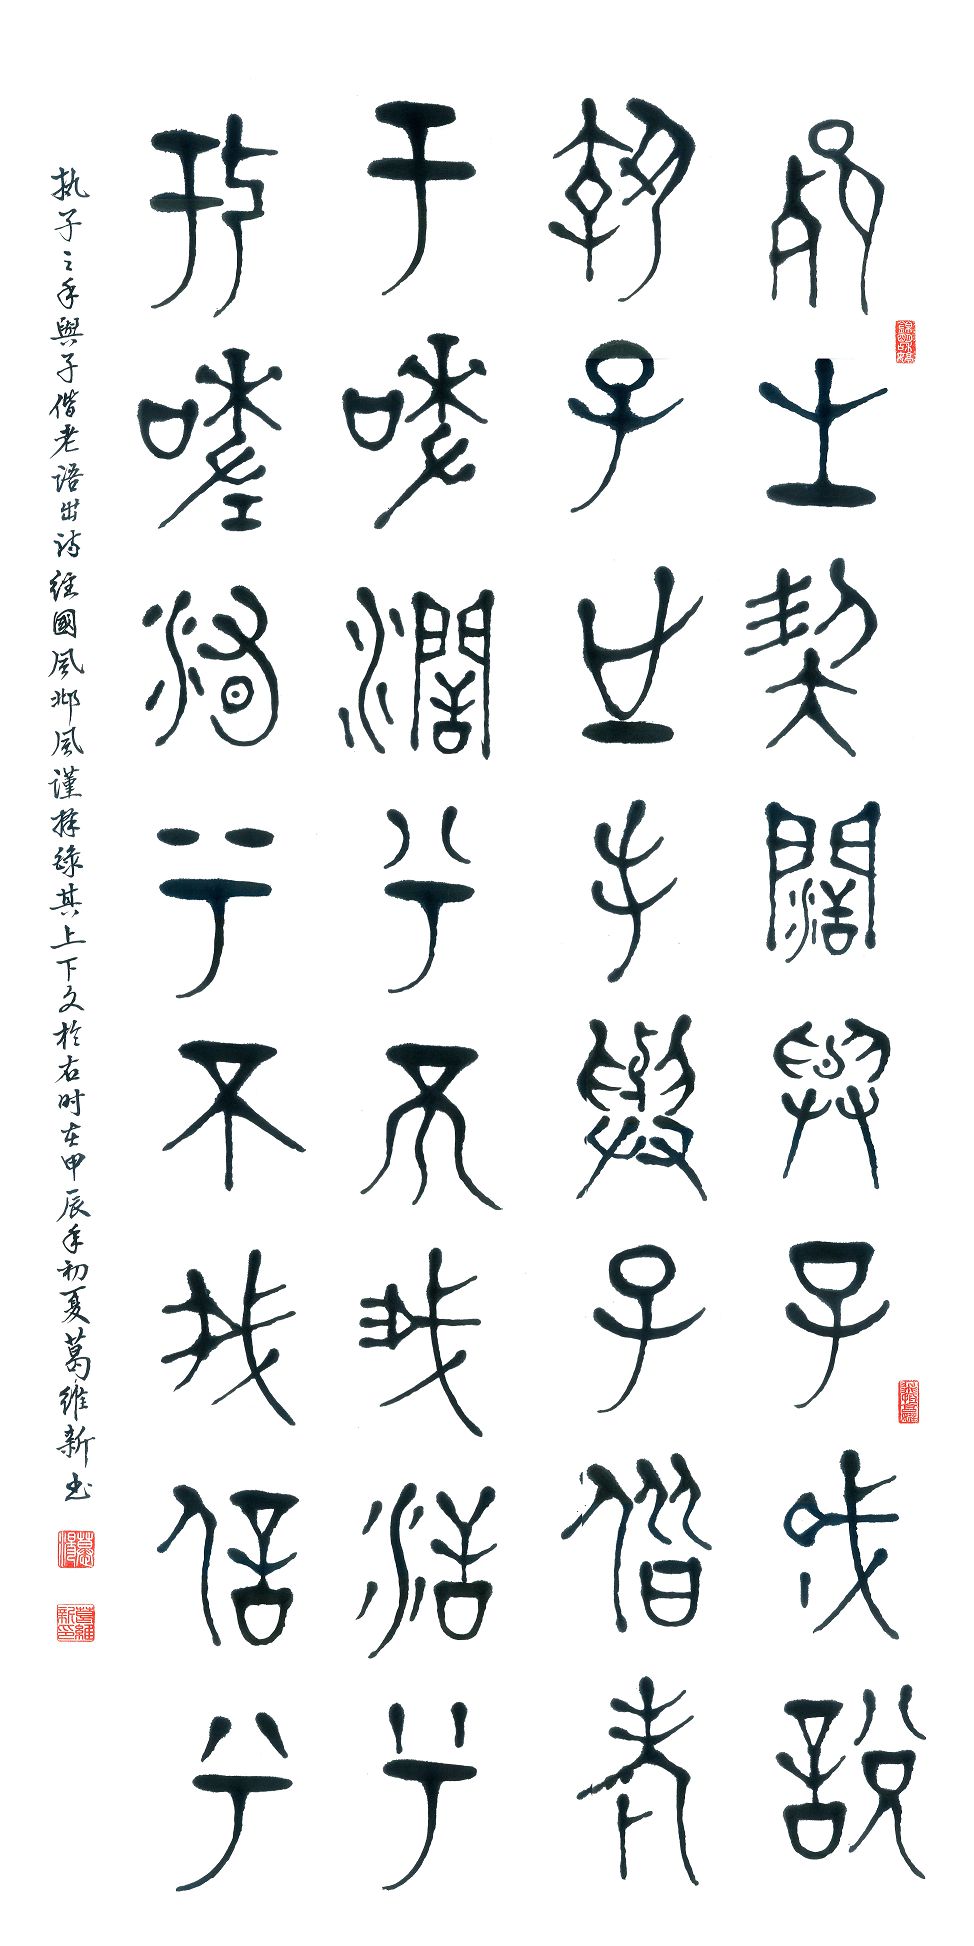 死生契闊與子成說
執子之手與子偕老
于嗟濶兮不我活兮
于嗟洵兮不我信兮
执子之手與子偕老語出詩經國風邶風謹择錄其上下文於右时在甲辰年初夏葛維新书
葛維新印